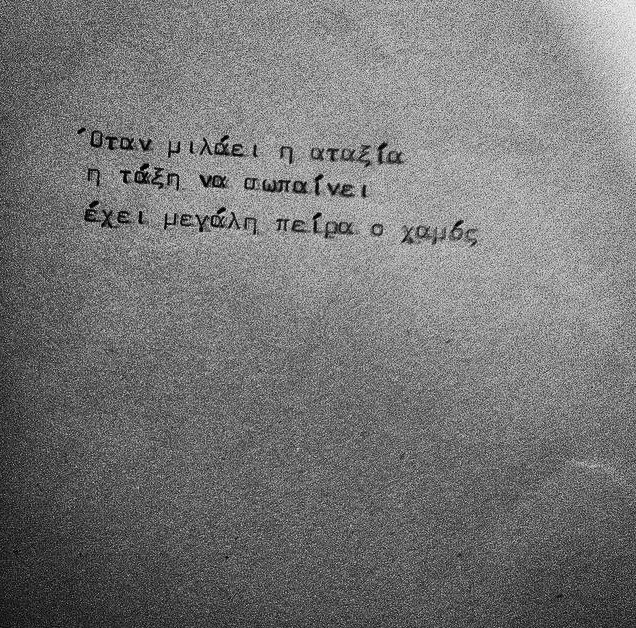 Όταν μιλάει η αταξία
η τάξη να σωπαίνει
έχει μεγάλη πείρα ο χαμός